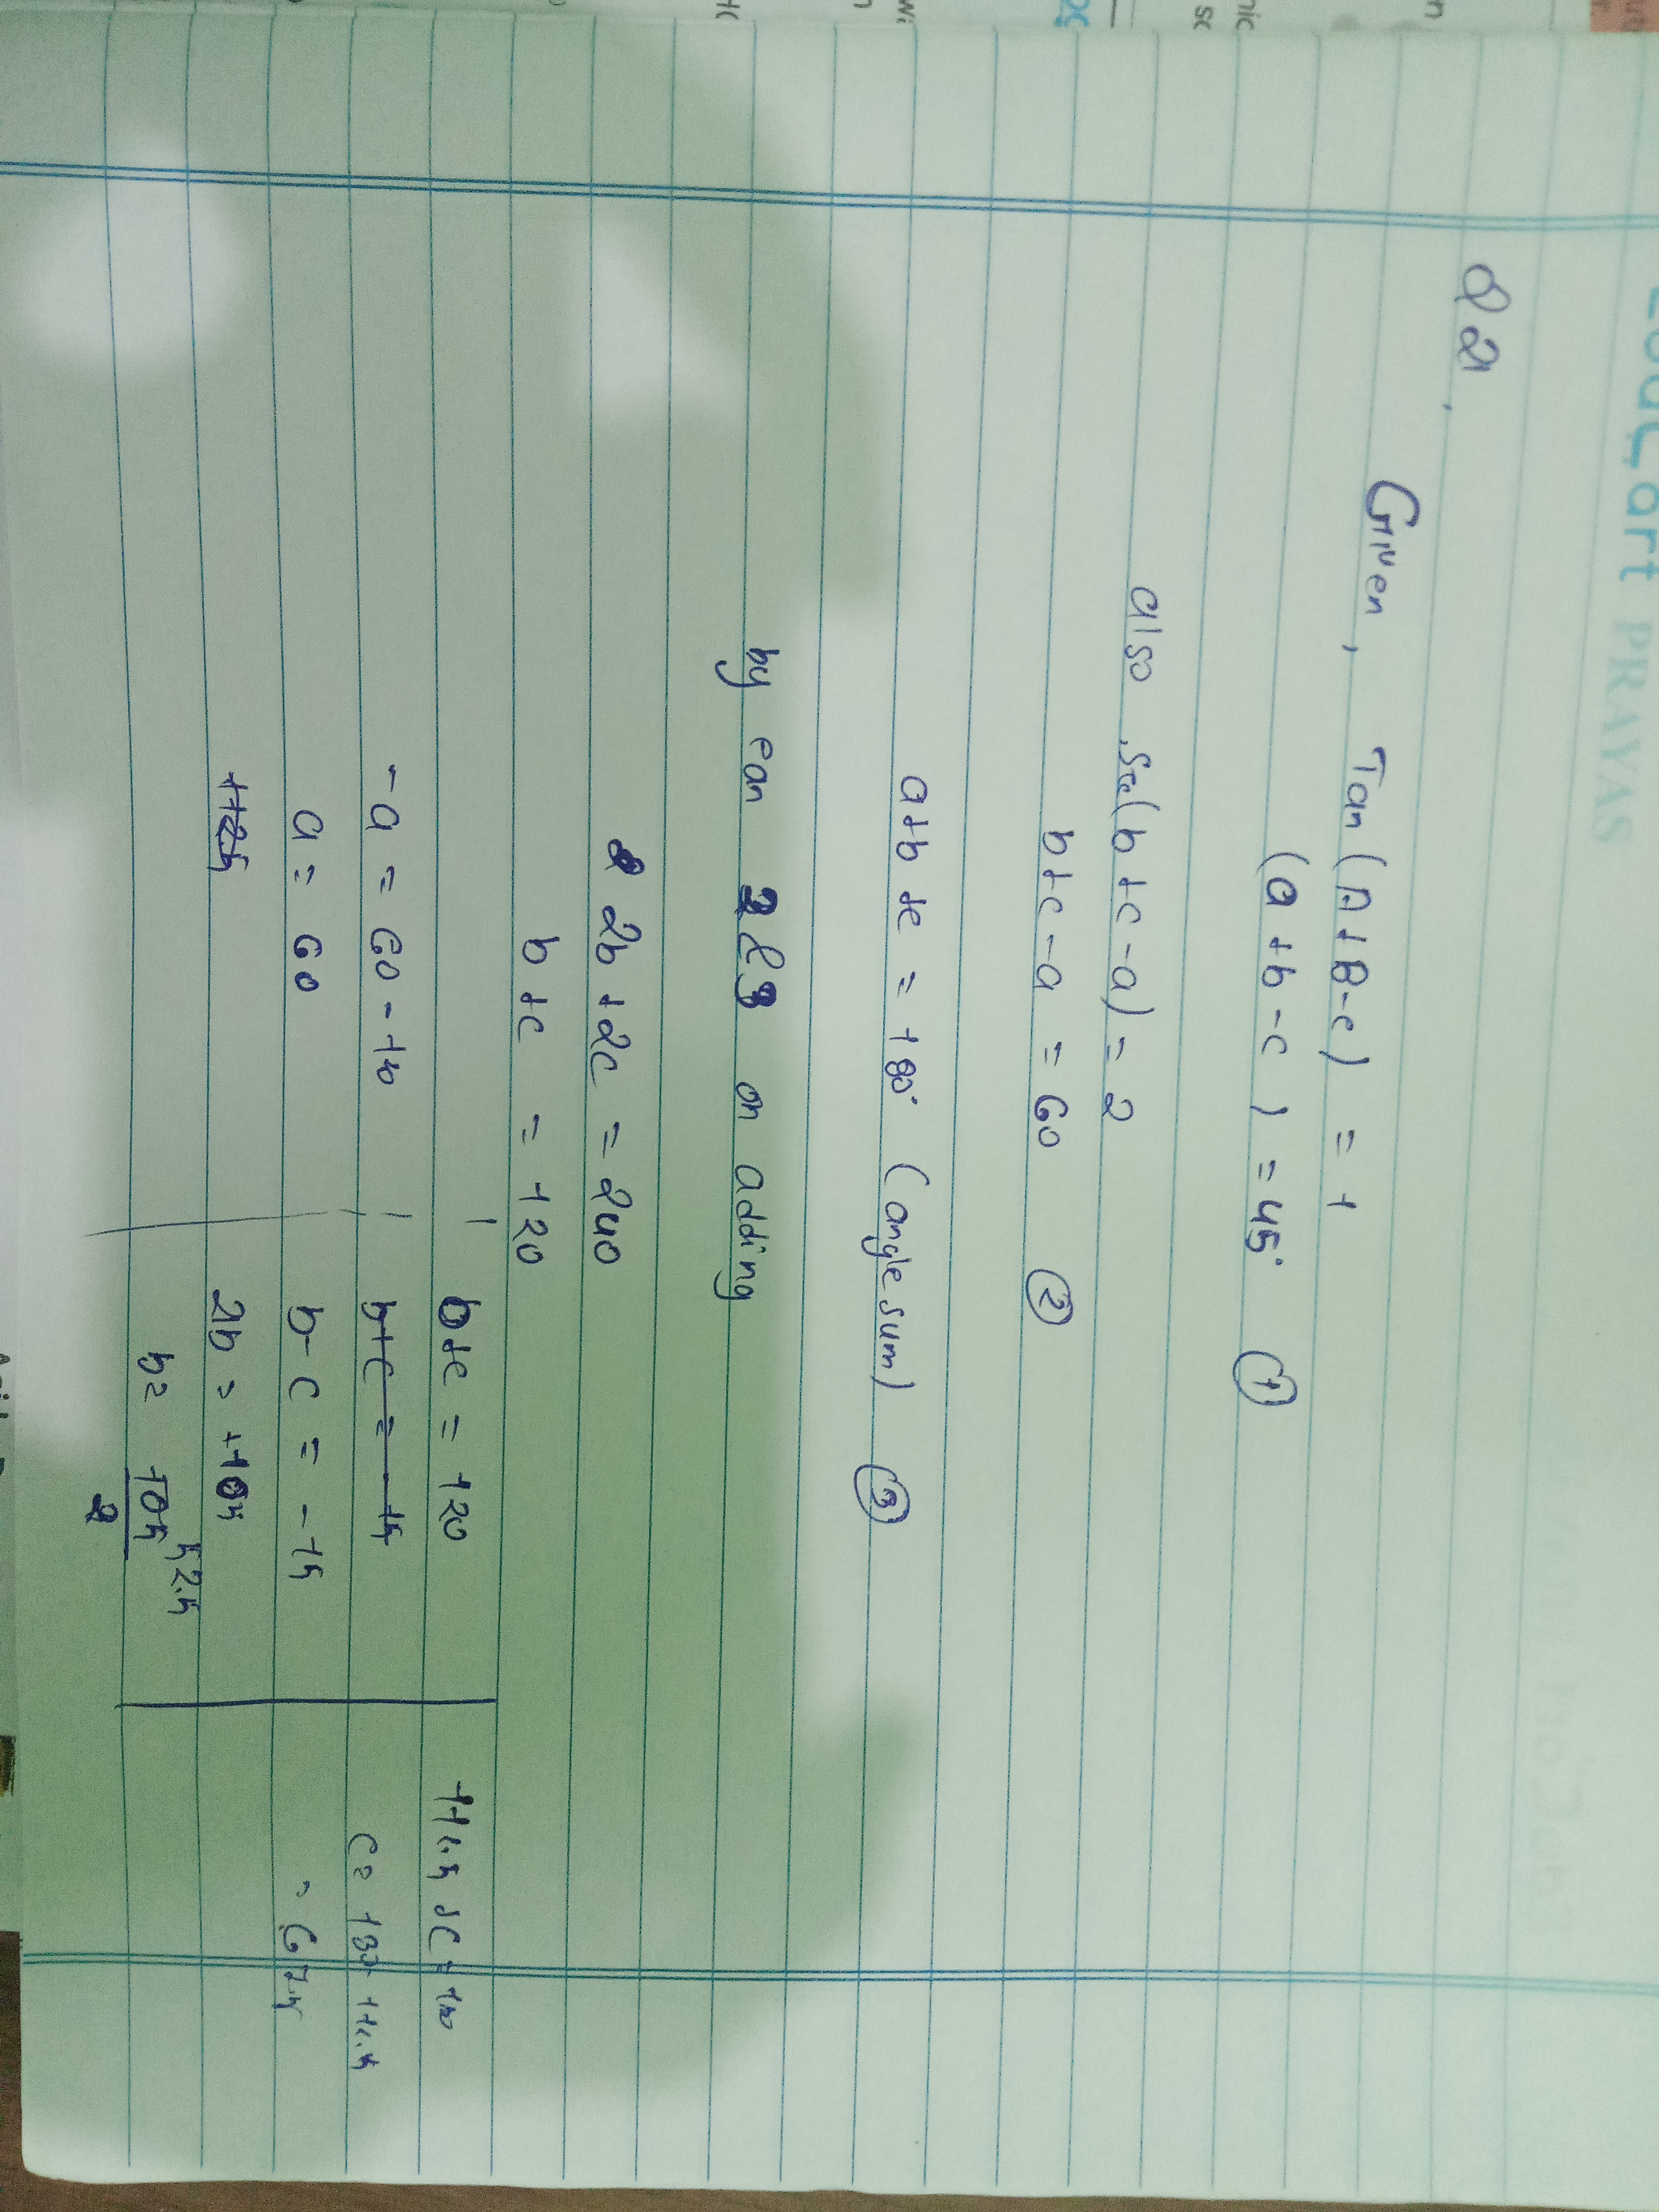 Q 21.
Given, Tan (A+B-c) = 1
(a+b-c) = 45° ①
also, Sec(b+c-a) = 2
b+c-a = 60 ②
a+b+c = 180° (angle sum) ③
by eqn 2 & 3 on adding
2b+2c = 240
b+c = 120
-a = 60-120
a = 60
b+c = 120
b+c = -15
b-c = -15
2b = +105
b= 105/2 52.5
c= 180-
= 67.5
PRAYAS